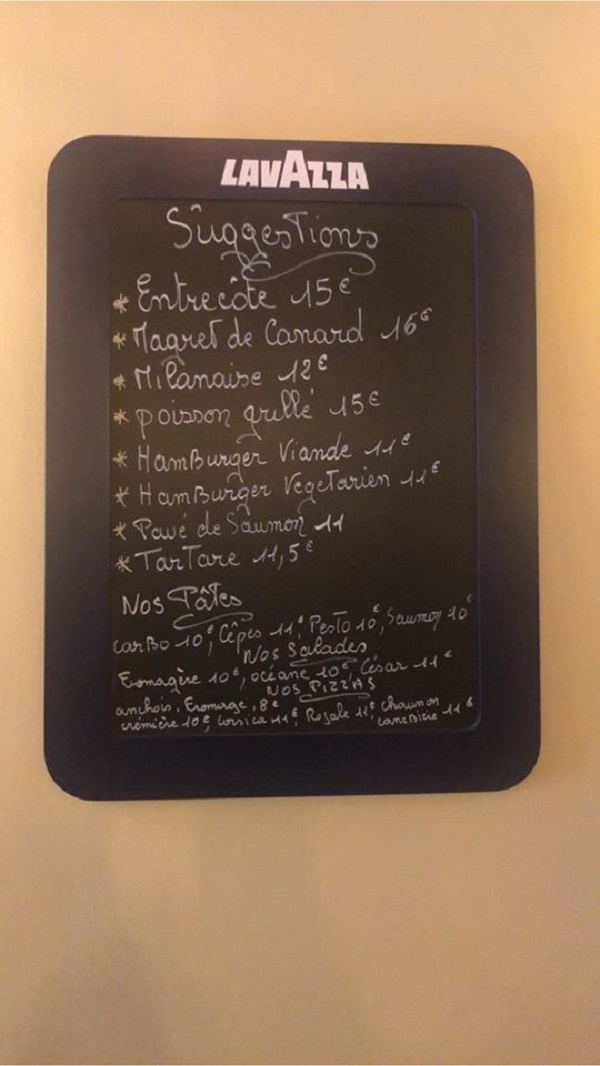 LAVAZZA
Suggestions
* Entrecôte 15€
* Magret de Canard 16€
* Milanaise 12€
* poisson grillé 15€
* HamBurger Viande 11€
* HamBurger Vegetarien 11€
* Pavé de Saumon 11
* TarTare 11,5€
Nos Pâtes
carBo 10€, Cêpes 11€, Pesto 10€, Saumon 10€
Nos Salades
Fromagère 10€, océane 10€, César 11€
NOS PIZZAS
anchois, Fromage, 8€
crémière 10€, Corsica 11€, Royale 11€, chaumon
11€